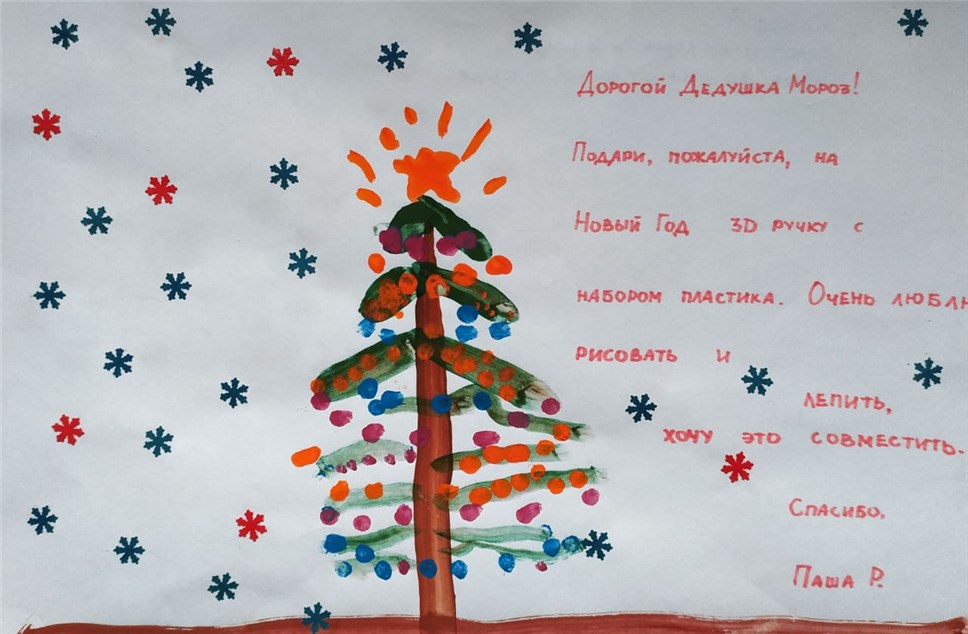 Дорогой Дедушка Мороз!
Подари, пожалуйста, на
Новый Год 3D ручку с
набором пластика. Очень люблю
рисовать и
лепить,
хочу это совместить.
Спасибо,
Паша Р.